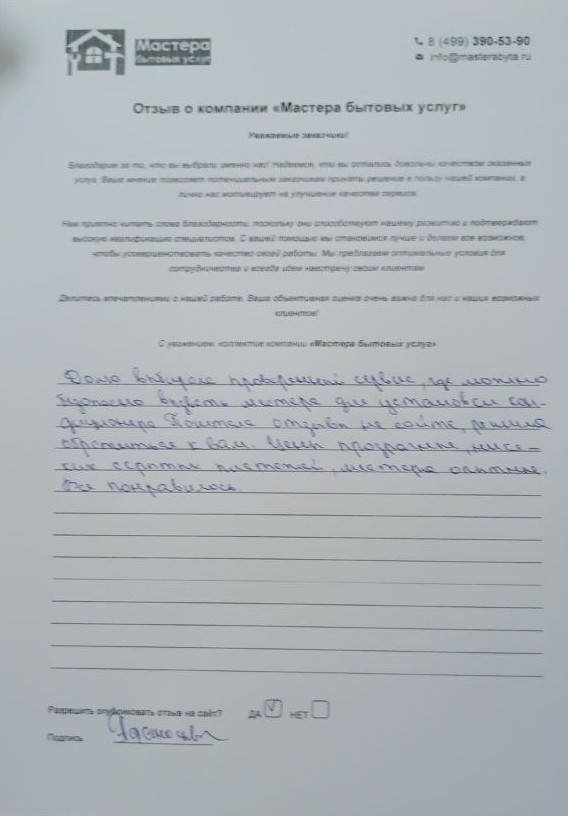 Мастера
бытовых услуг
8 (499) 390-53-90
info@masterabyta.ru
Отзыв о компании «Мастера бытовых услуг»
Уважаемые заказчики!
Благодарим за то, что вы выбрали именно нас! Надеемся, что вы остались довольны качеством оказанных
услуг. Ваше мнение поможет потенциальным заказчикам принять решение в пользу нашей компании, а
лично нас мотивирует на улучшение качества сервиса.
Нам приятно читать слова благодарности, поскольку они способствуют нашему развитию и подтверждают
высокую квалификацию специалистов. С вашей помощью мы становимся лучше и делаем все возможное,
чтобы усовершенствовать качество своей работы. Мы предлагаем оптимальные условия для
сотрудничества и всегда идем навстречу своим клиентам.
Делитесь впечатлениями о нашей работе. Ваша объективная оценка очень важна для нас и наших возможных
клиентов!
С уважением, коллектив компании «Мастера бытовых услуг»
Долго проверенный сервис, где можно
безопасно вызвать мастера для установки кон-
диционера. Почитала отзывы на сайте, решила
обратиться к вам. Цены прозрачные, ника-
ких скрытых платежей, мастера опытные.
Все понравилось.
Разрешить опубликовать отзыв на сайт? ДА V НЕТ
Подпись